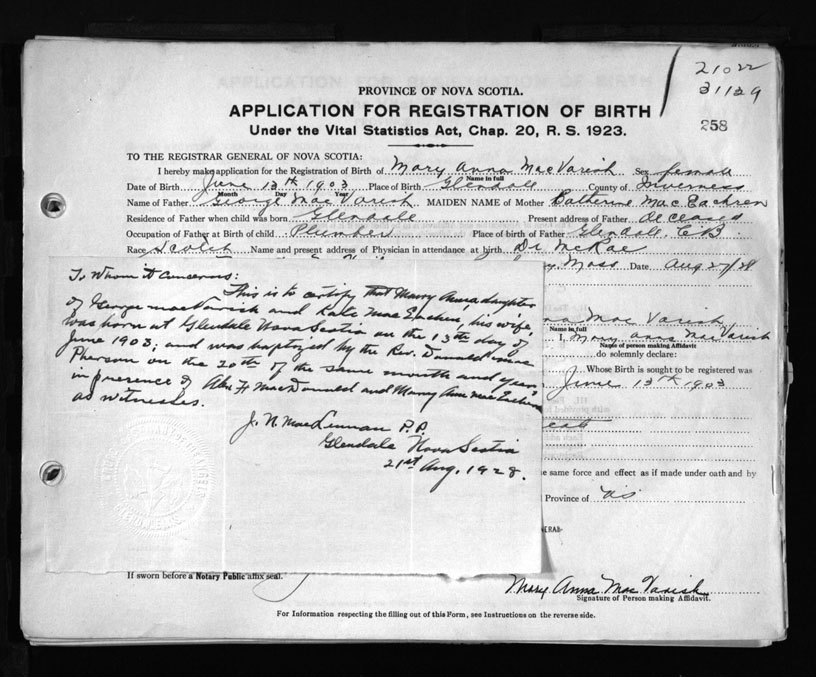 21022
31129
258
PROVINCE OF NOVA SCOTIA.
APPLICATION FOR REGISTRATION OF BIRTH
Under the Vital Statistics Act, Chap. 20, R. S. 1923.
TO THE REGISTRAR GENERAL OF NOVA SCOTIA:
I hereby make application for the Registration of Birth of Mary Anna MacVarish Sex female
Name in full
Date of Birth June 13th 1903 Place of Birth Glendall County of Inverness
Month Day
Name of Father George MacVarish MAIDEN NAME of Mother Catherine MacEachren
Residence of Father when child was born Glendale Present address of Father deceased
Occupation of Father at Birth of child Plumber Place of birth of Father Glendall, C.B.
Race Scotch Name and present address of Physician in attendance at birth Dr. McRae
Mass Date Aug 27/28
To Whom it concerns:
This is to certify that Mary Anna, daughter
of George MacVarish and Kate MacEachen, his wife,
was born at Glendale Nova Scotia on the 13th day of
June 1903; and was baptized by the Rev. Donald Mac
Pherson on the 20th of the same month and year
in presence of Alex F. MacDonald and Mary Ann MacEachen
as witnesses.
J. N. MacLennan P.P.
Glendale Nova Scotia
21st Aug. 1928.
Mac Varish
Name in full
I, Mary Ann MacVarish
Name of person making Affidavit
do solemnly declare:
Whose Birth is sought to be registered was
June 13th 1903
e same force and effect as if made under oath and by
Province of
NERAL
If sworn before a Notary Public affix seal.
Mary Anna MacVarish
Signature of Person making Affidavit.
For Information respecting the filling out of this Form, see Instructions on the reverse side.